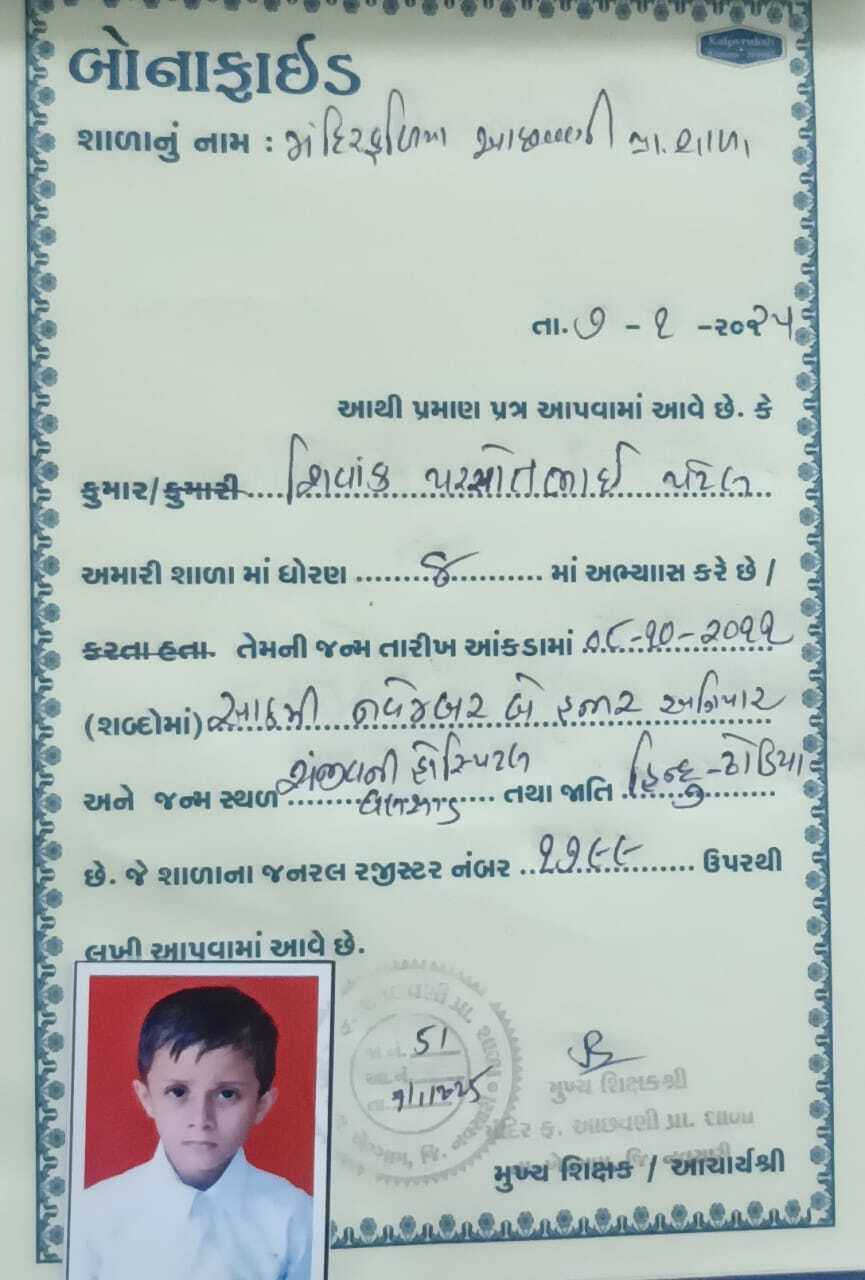 બોનાફાઈડ
Kalpvruksh
શાળાનું નામ : મંદિરફળિયા આછવણી પ્રા. શાળા
તા. ૭ - ૧ -૨૦૨૫
આથી પ્રમાણ પત્ર આપવામાં આવે છે. કે
કુમાર/કુમારી.... શિવાંક પરસોતભાઈ પટેલ
અમારી શાળા માં ધોરણ ........૪.......... માં અભ્યાસ કરે છે /
કરતા હતા. તેમની જન્મ તારીખ આંકડામાં ૦૮-૧૦-૨૦૧૧
(શબ્દોમાં) આઠમી નવેમ્બર બે હજાર અગિયાર
અને જન્મ સ્થળ સંજીવની હોસ્પિટલ તથા જાતિ હિન્દુ-ઢોડિયા
છે. જે શાળાના જનરલ રજીસ્ટર નંબર ..૧૭૯૯........... ઉપરથી
લખી આપવામાં આવે છે.
જા.નં. 51
તા. 7/1/2025
મુખ્ય શિક્ષકશ્રી
મંદિર ફ. આછવણી પ્રા. શાળા
મુખ્ય શિક્ષક / આચાર્યશ્રી